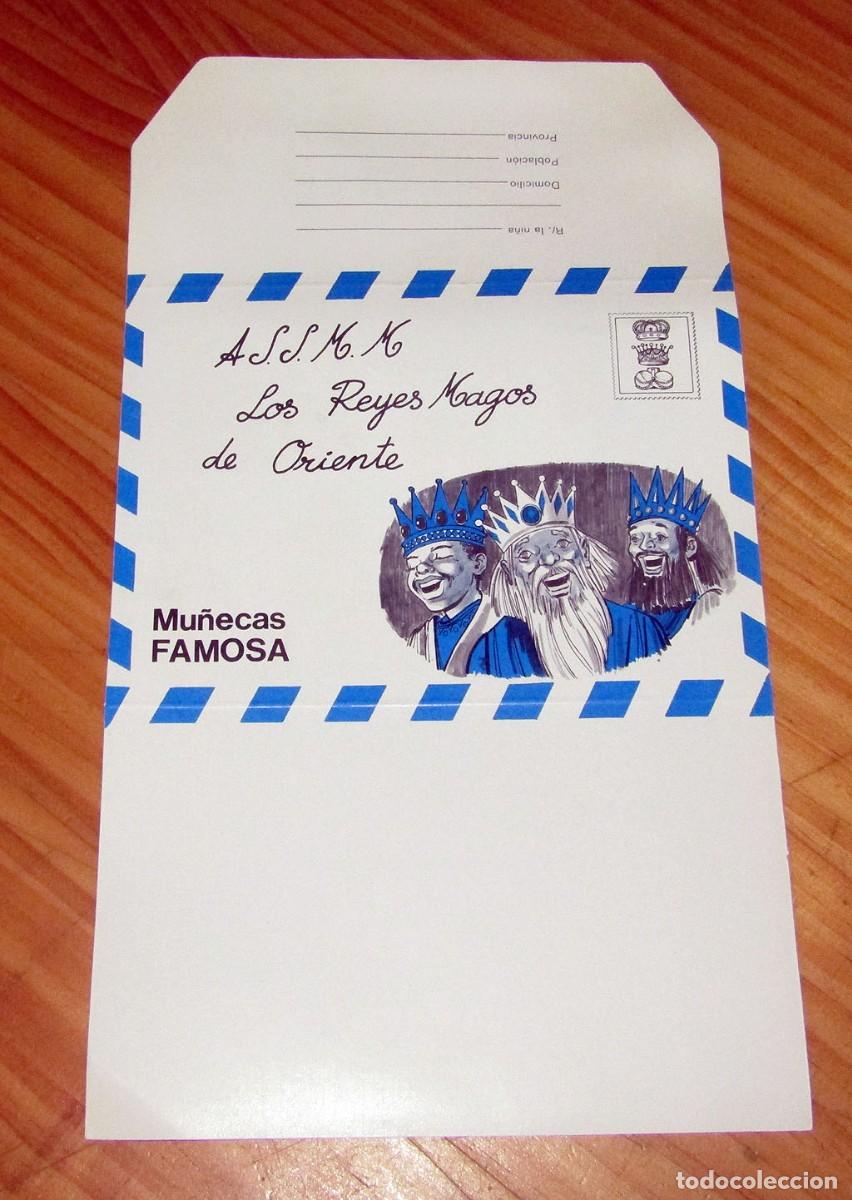 Provincia
Población
Domicilio
R/. la niña
A S.S. M.M
Los Reyes Magos
de Oriente
Muñecas
FAMOSA
todocoleccion